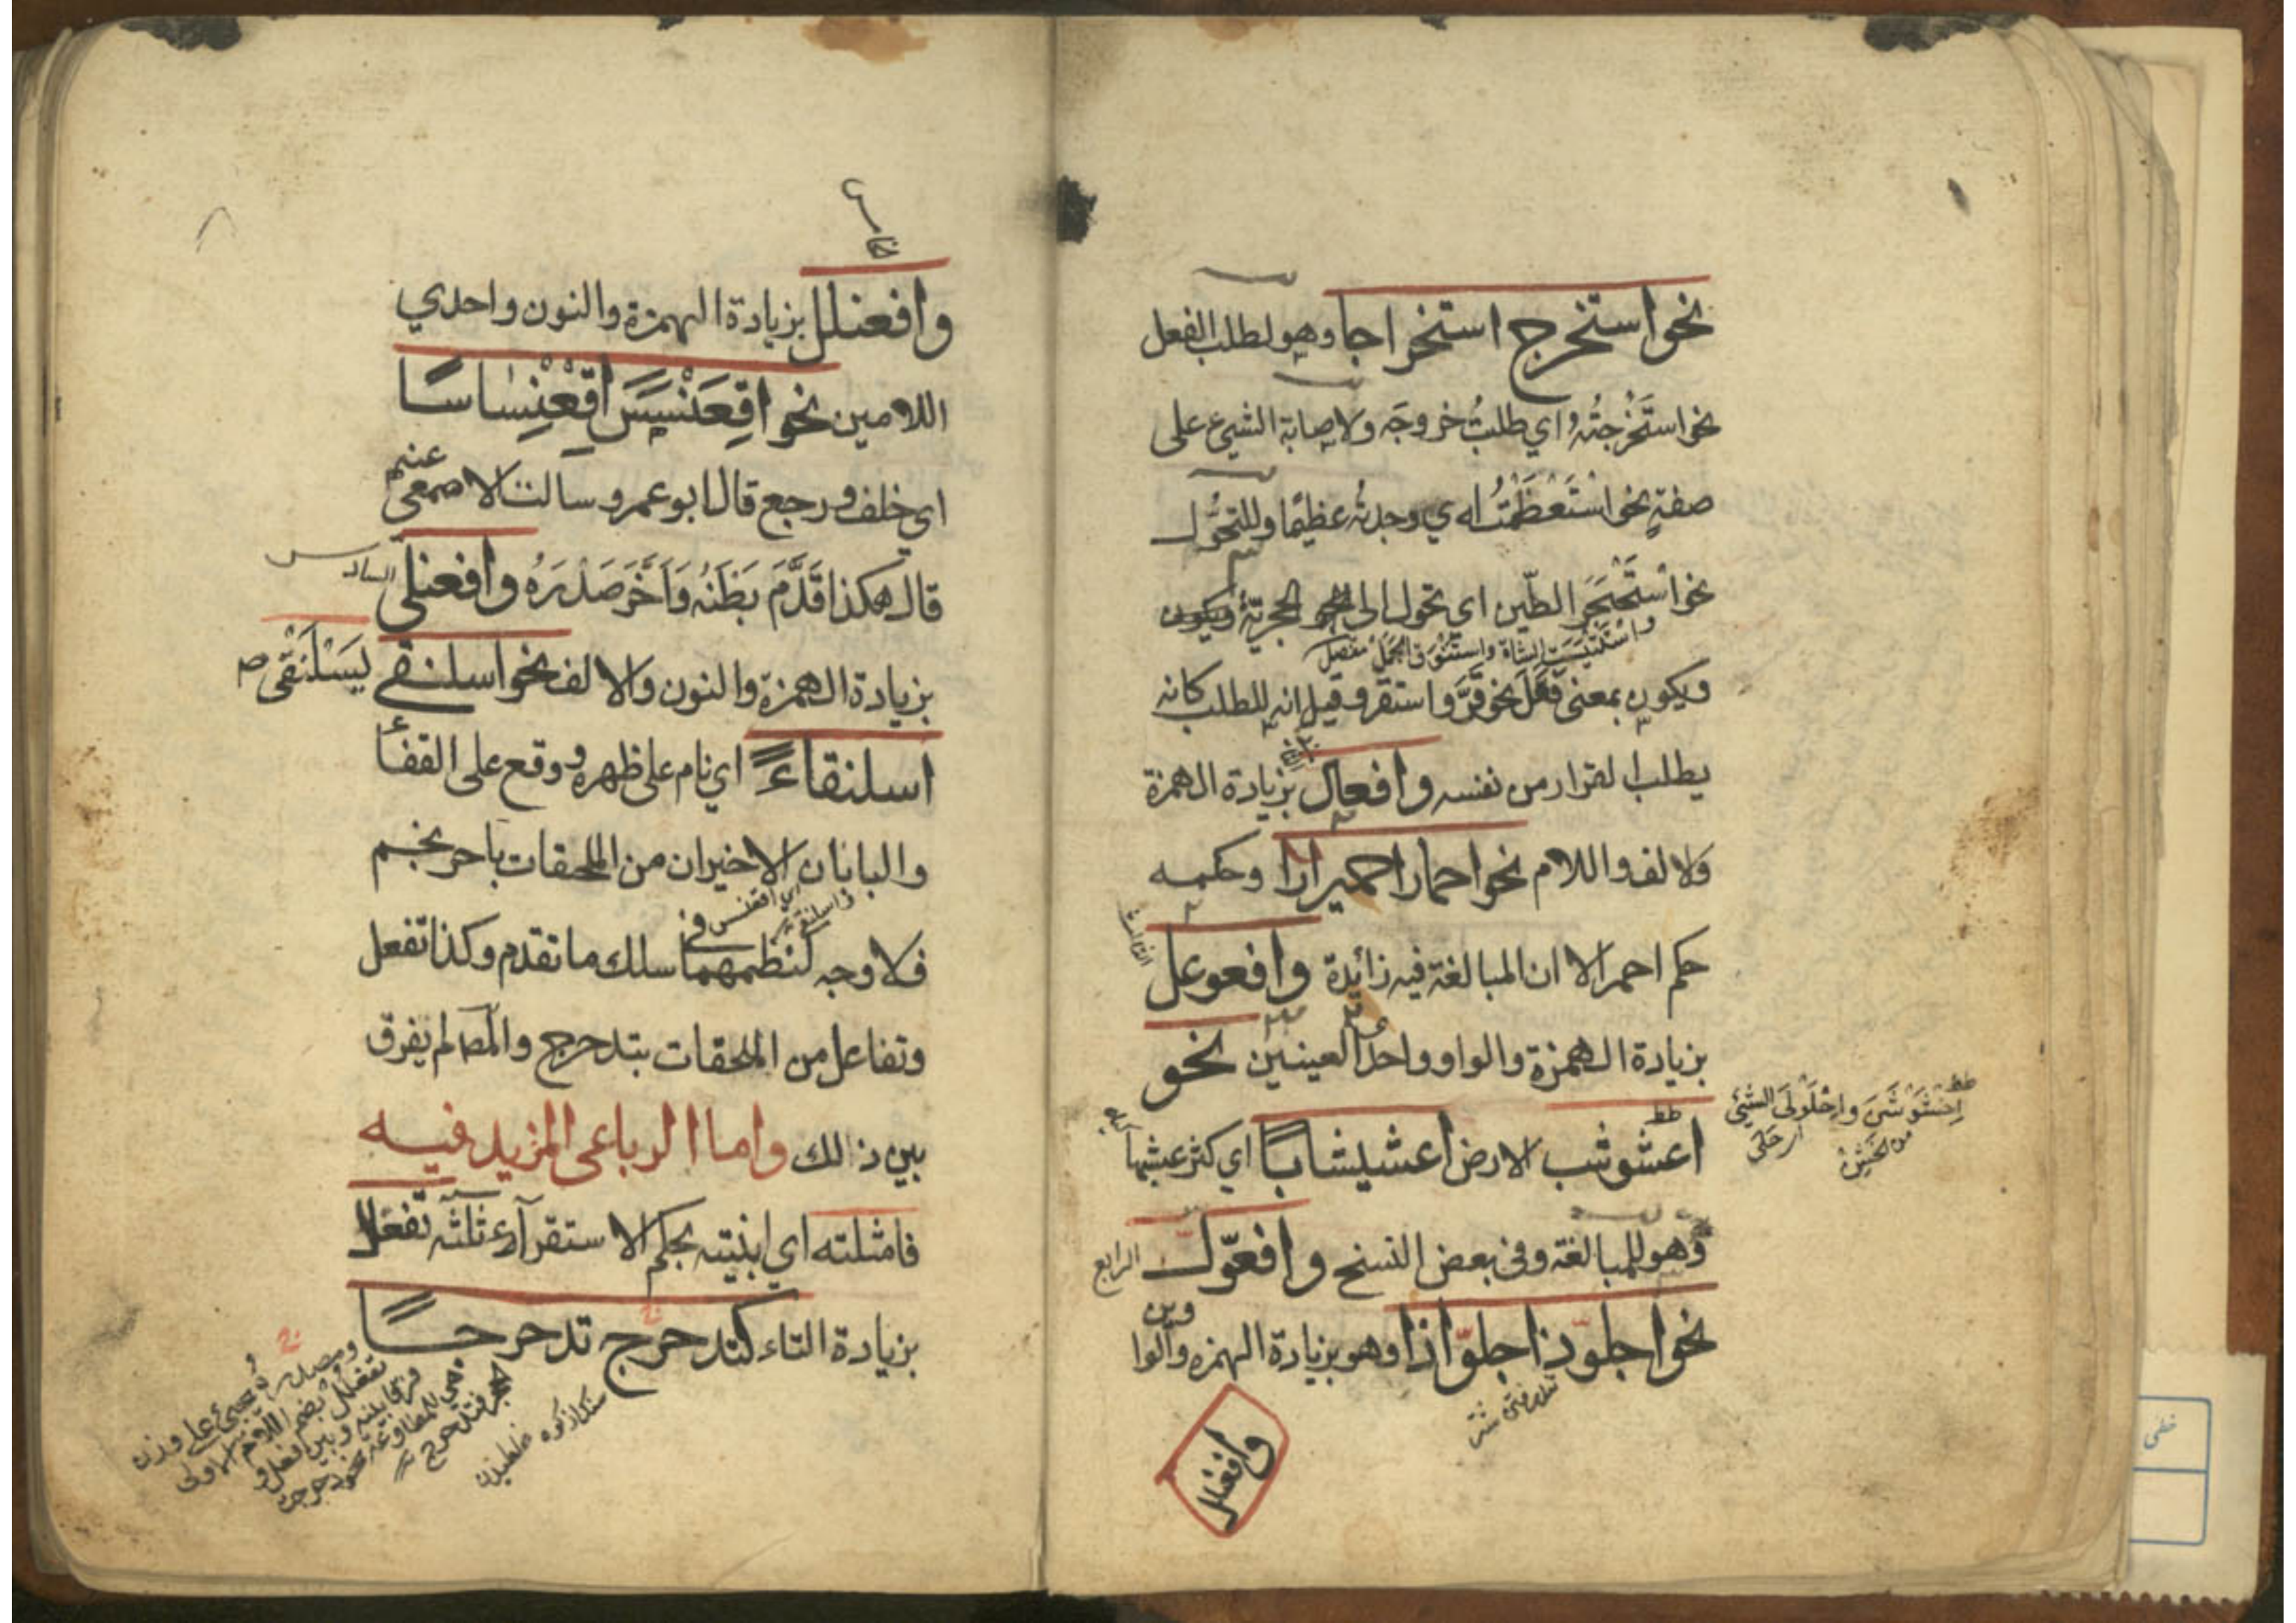 نحو استخرج استخراجا وهو لطلب الفعل
نحو استَخْرجتُه اي طلبتُ خروجَه ولاصابة الشيئ على
صفةٍ نحو استَعْظَمْتُه اي وجدتُه عظيمًا وللتحوُّل
نحو اسْتَحْجَرَ الطّين اي تحول الى الحجريّة
واستَتْيَسَت الشاة واستنوق الجمل
ويكون بمعنى فَعَلَ نحو قرَّ واستقر وقيل انه للطلب كانه
يطلب القرار من نفسه وافعالّ بزيادة الهمزة
والالف واللام نحو احمارّ احميرارا وحكمه
حكم احمر الا ان المبالغة فيه زائدة وافعوعل
الثالث
بزيادة الهمزة والواو واحدى العينين نحو
اعشوشب الارض اعشيشابًا اي كثر عشبها
اخشَوْشَنَ واحْلَوْلَى الشيئ
من الخشن
وهو للمبالغة وفي بعض النسخ وافعوّل
الرابع
نحو اجلوّذ اجلوّاذا وهو بزيادة الهمزه والوا
وين
وافعنلل
وافعنلل بزيادة الهمزة والنون واحدي
اللامين نحو اقِعَنْسَسَ اقِعْنِسَاسًا
اي خلف ورجع قال ابو عمرو سالت الاصمعي عنه
قال هكذا قَدَّمَ بَطْنَهُ وَاَخَّرَ صَدْرَهُ وافعنلى
السادس
بزيادة الهمزة والنون والالف نحو اسلنقى يَسْلَنْقى
اسلنقاءً اي نام على ظهره ووقع على القفأ
والبابان الاخيران من الملحقات باحرنجم
فلا وجه لنظمهما في سلك ما تقدم وكذا تفعل
وتفاعل من الملحقات بتدحرج والمص لم يفرق
بين ذالك واما الرباعى المزيد فيه
فامثلته اي ابنيته بحكم الاستقرآء ثلثه تفعلل
بزيادة التاء كتدحرج تدحرجًا
ومصدره يجيئ على وزن
تفعلل بضم اللام الاولى
فرقا بينه وبين